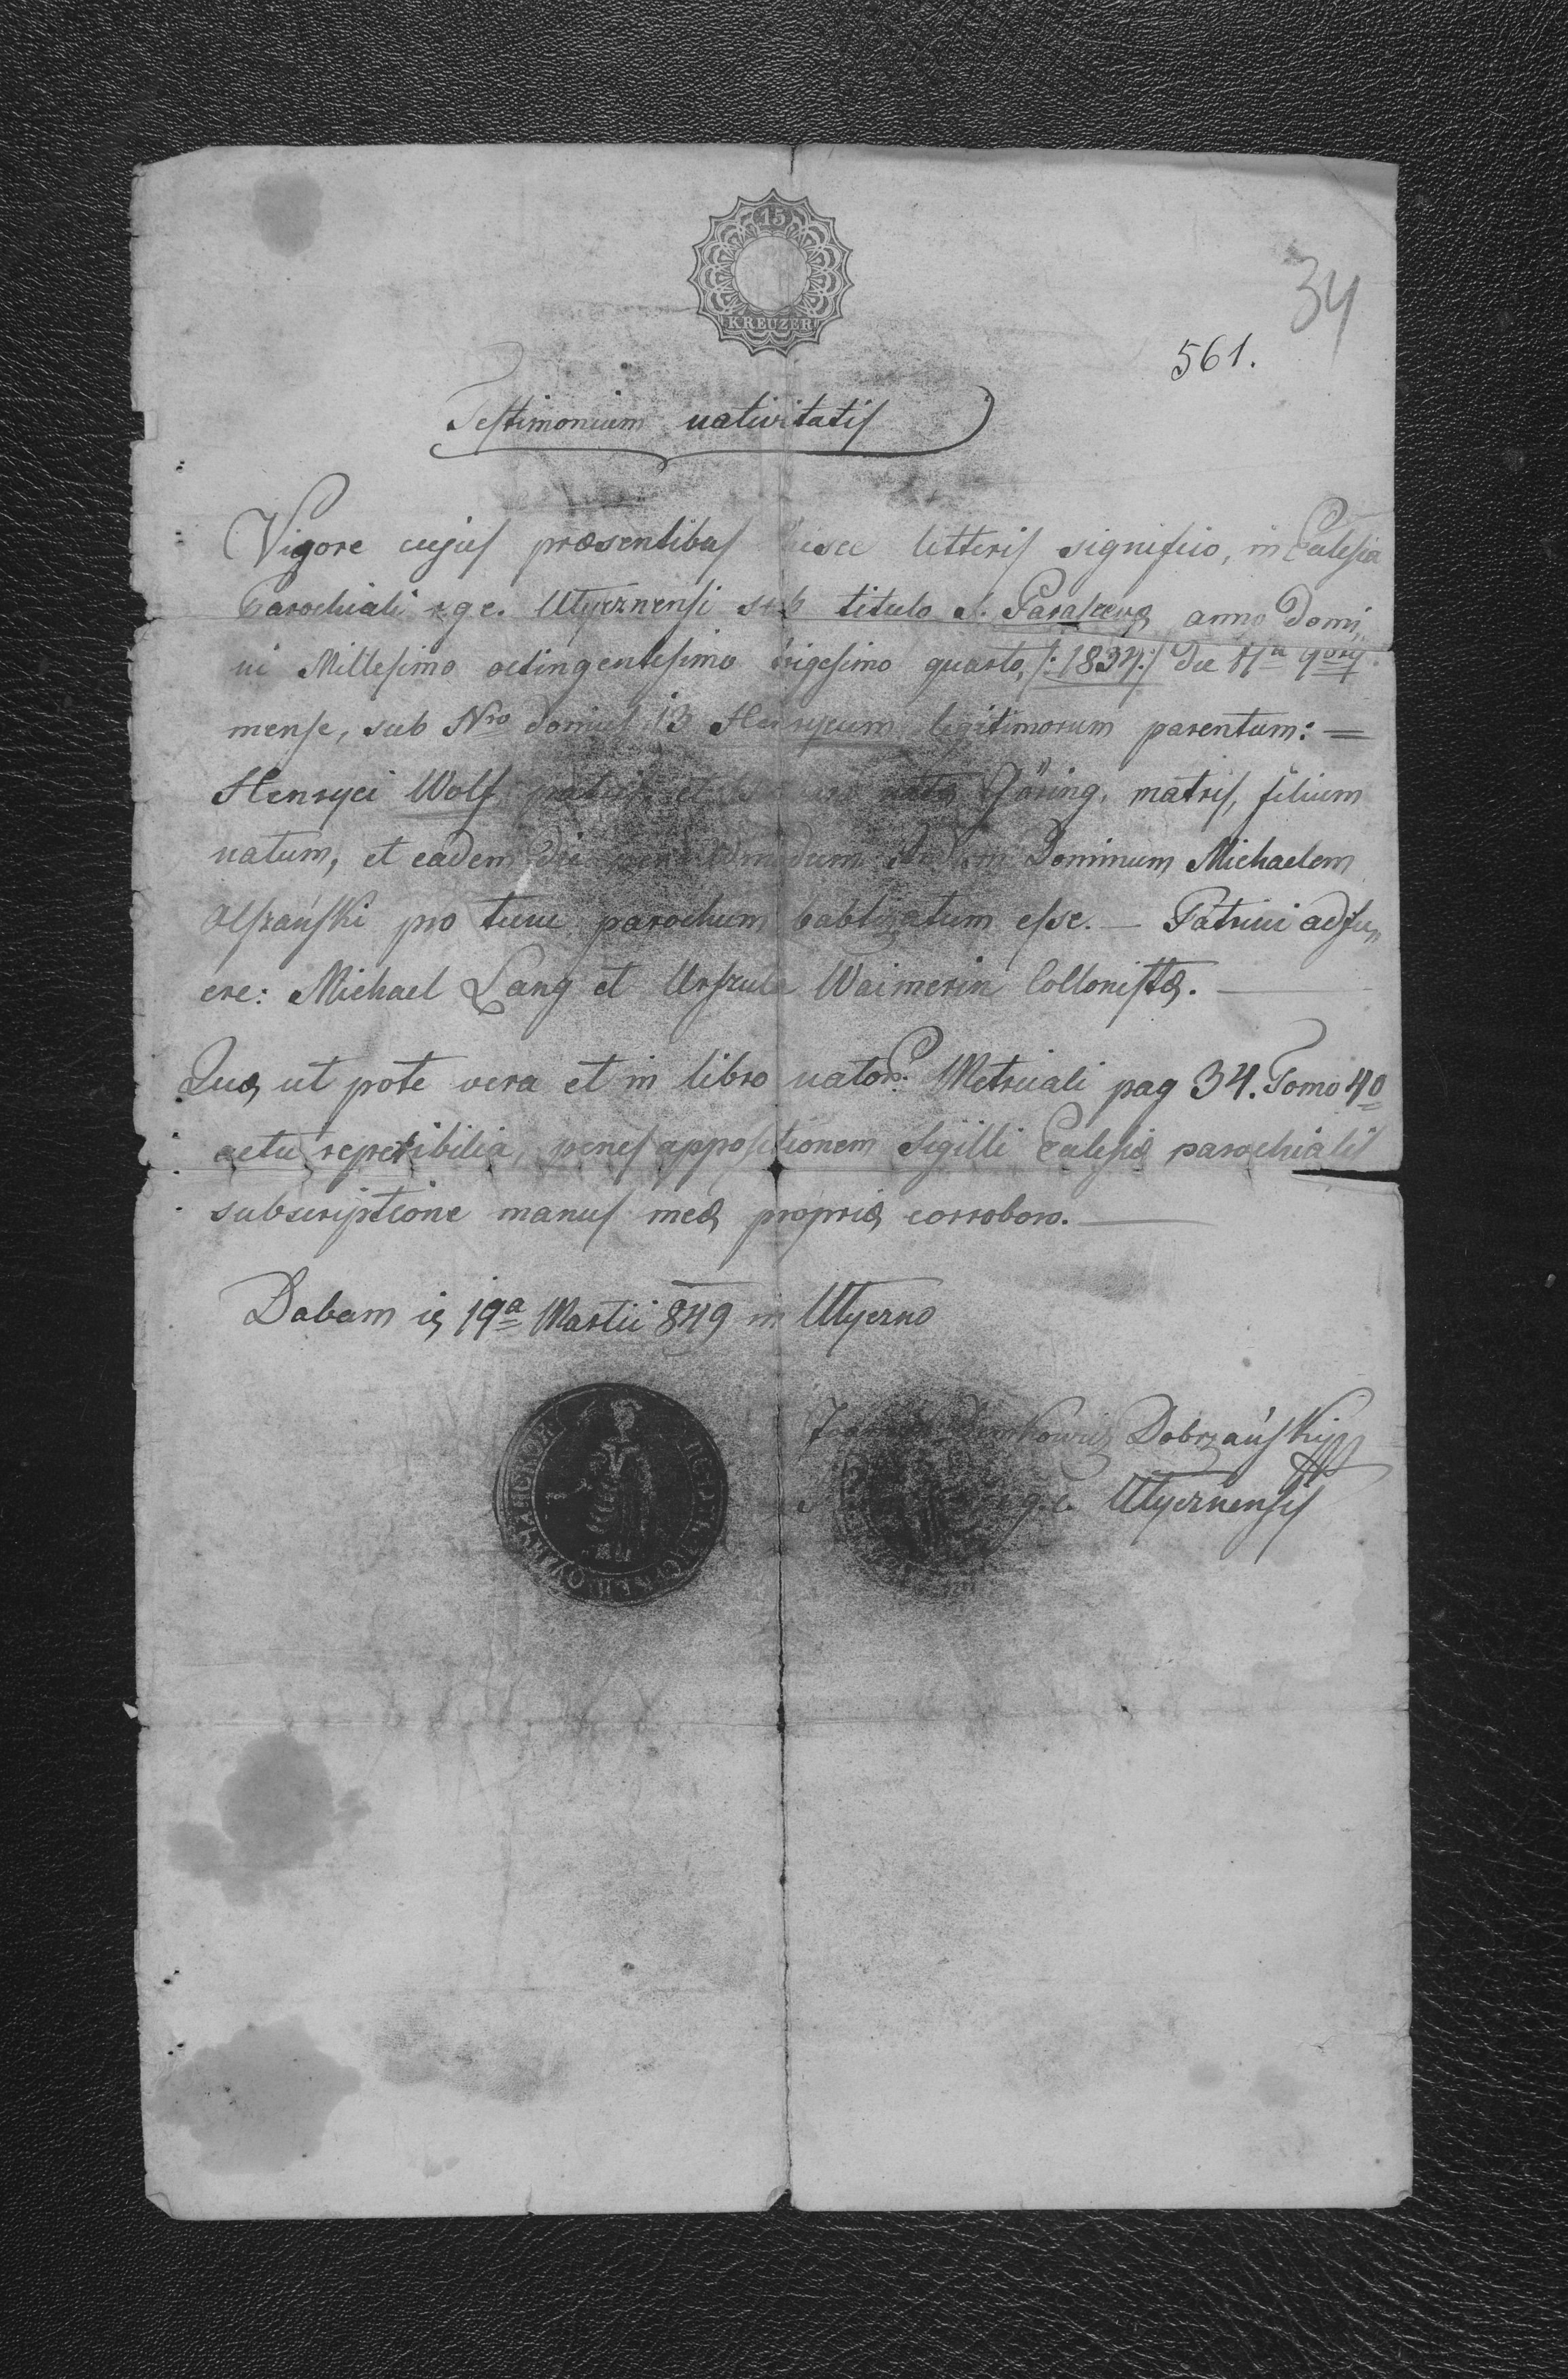 15
KREUZER
34
561.
Testimonium nativitatis
Vigore cujus præsentibus hisce litteris significo, in Ecclesia
Parochiali r. g. c. Utyeznensi sub titulo S. Parasceuæ anno Domi,
ni Millesimo octingentesimo trigesimo quarto, /:1834:/ die 4ta 9bris
mense, sub Nro domus 13 Henrycum legitimorum parentum: =
Henryci Wolf patris, et nata Göring, matris, filium
natum, et eadem die per Dominum Michaelem
Olszański pro tunc parochum babtizatum esse. — Patrini adfu,
ere: Michael Lang et Urszula Waimerin Collonistæ. —
Quæ ut pote vera et in libro nator. Metricali pag 34. Tomo 40
actu reperibilia, penes appositionem Sigilli Ecclesiæ parochialis
subscriptione manus meæ propriæ corroboro. —
Dabam 19a Martii 849 in Utyezno
Dobrzański
g. c. Utyeznensis